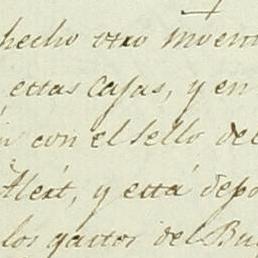 hecho otro Inven
estas Cajas, y en
con el sello de
y está depo
los gastos del Bu